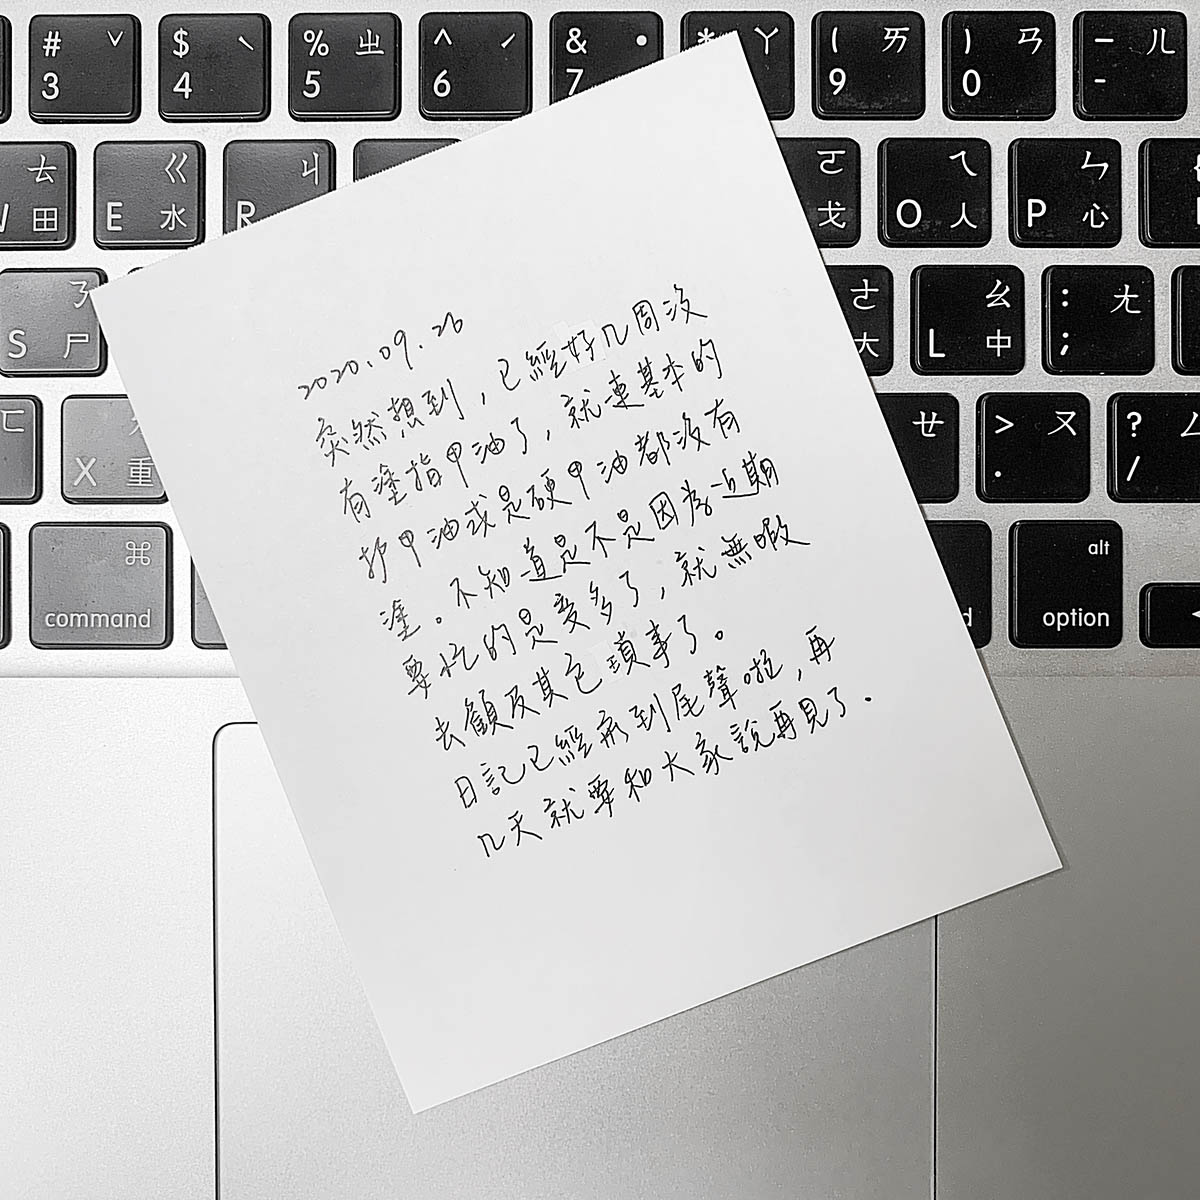 # ˇ 3
$ ˋ 4
% ㄓ 5
^ ˊ 6
& ˙ 7
* ㄚ
( ㄞ 9
) ㄢ 0
– ㄦ -
ㄊ W 田
ㄍ E 水
ㄐ R
ㄛ 戈
ㄟ O 人
ㄣ P 心
ㄋ S 尸
ㄜ 大
ㄠ L 中
: ㄤ ;
ㄈ
X 重
ㄝ
> ㄡ .
? ㄥ /
⌘ command
d
alt option
2020.09.26
突然想到，已經好几周沒
有塗指甲油了，就連基本的
护甲油或是硬甲油都沒有
塗。不知道是不是因為近期
要忙的是变多了，就無暇
去顧及其它瑣事了。
日記已經來到尾聲啦，再
几天就要和大家說再見了.